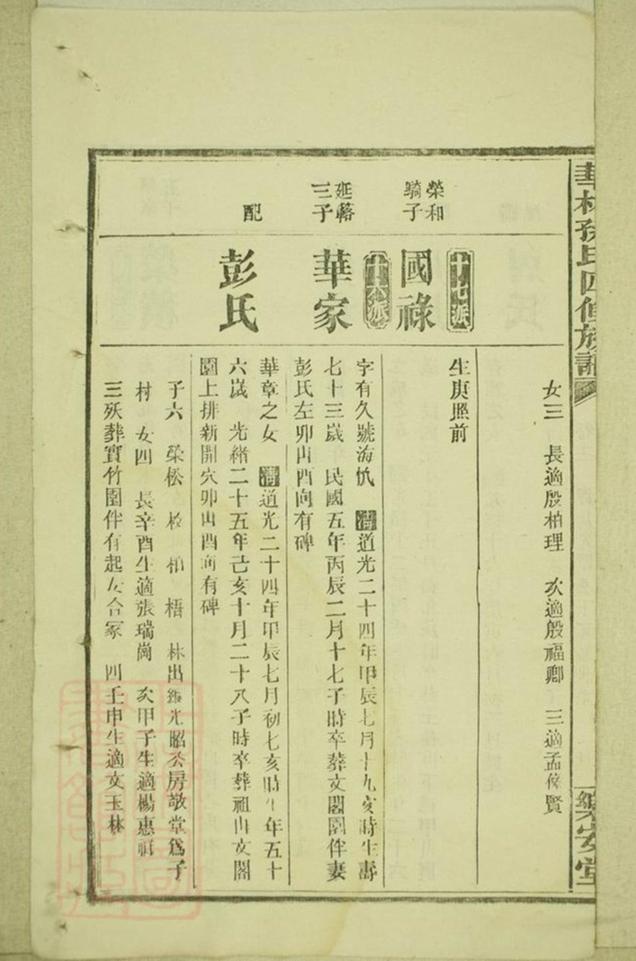 華林孫氏四修族譜
樂安堂
女三 長適殷柏理 次適殷福卿 三適孟俊賢
十七派
生庚照前
榮和
騎子
國祿
十六派
字有久號海 清道光二十四年甲辰七月十九亥時生壽
七十三歲 民國五年丙辰二月十七子時卒葬文閣園伴妻
彭氏左卯山酉向有碑
延輅
三子
華家
配
彭氏
華章之女 清道光二十四年甲辰七月初七亥時生年五十
六歲 光緒二十五年己亥十月二十八子時卒葬祖山文閣
園上排新開穴卯山酉向有碑
子六 榮松 柏 梧 林出繼光昭公房敬堂為子
村 女四 長辛酉生適張瑞崗 次甲子生適楊惠祖
三殀葬寶竹園伴有起女合冢 四壬申生適文玉林